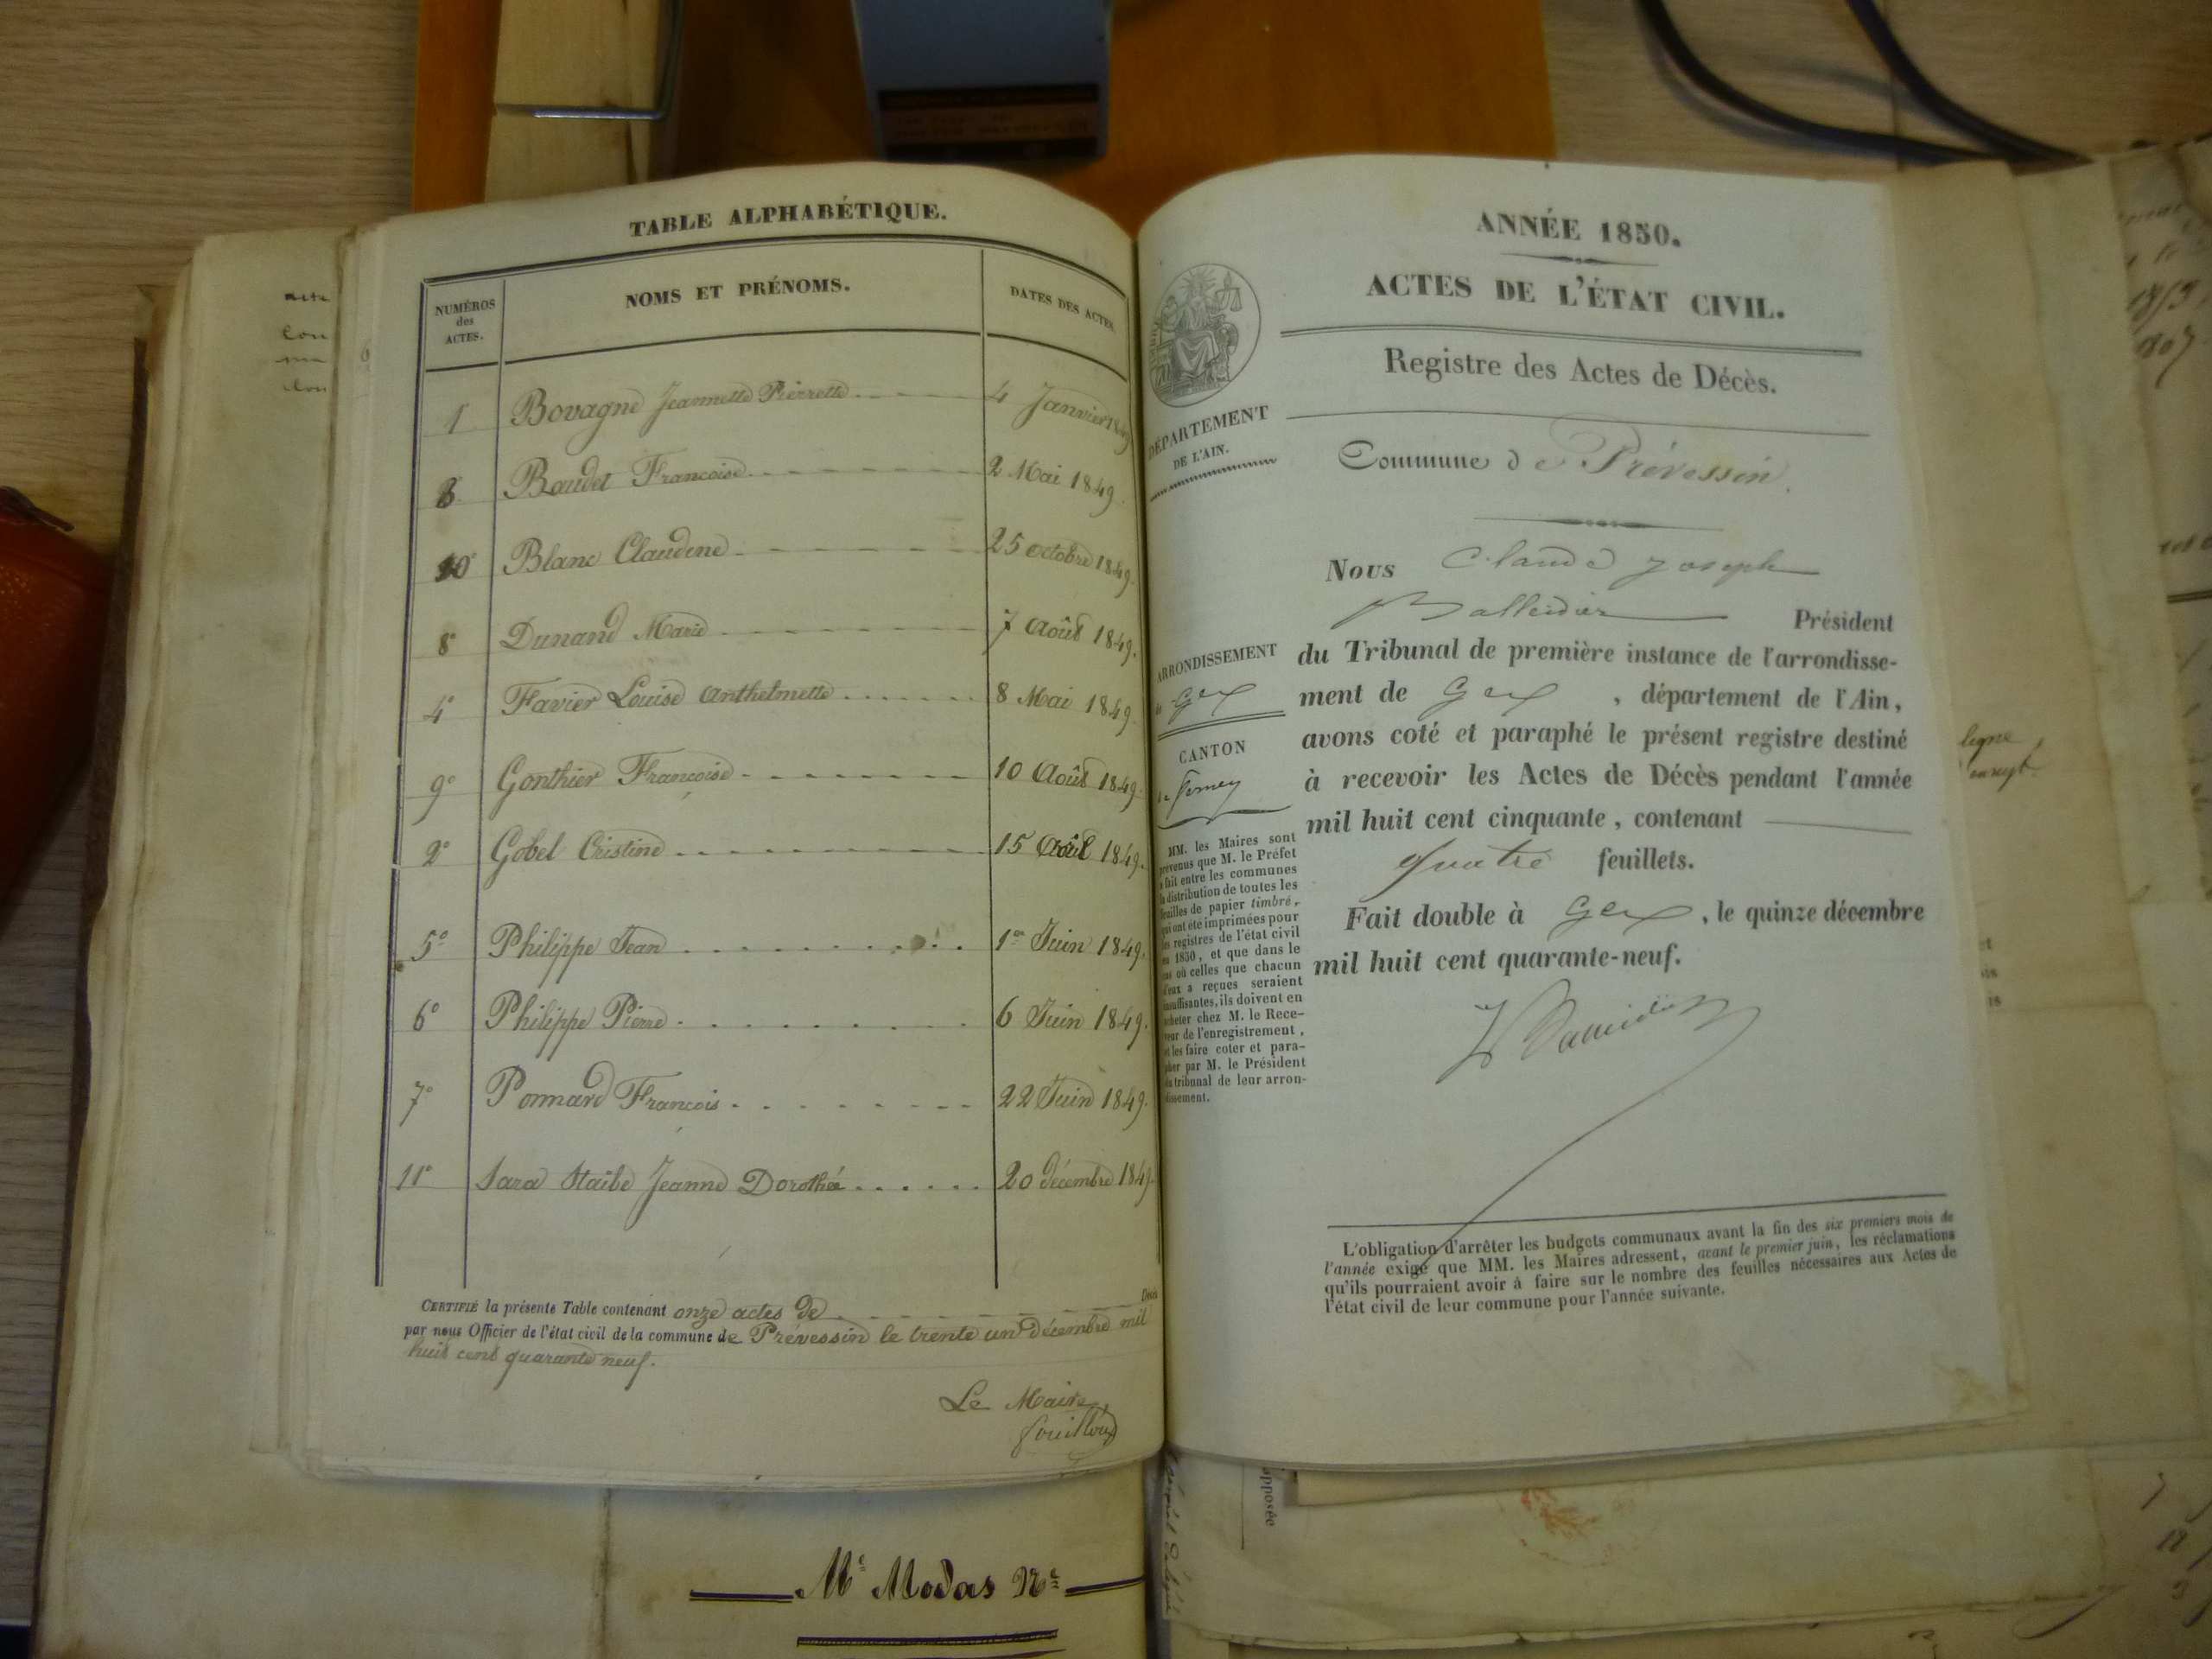 TABLE ALPHABÉTIQUE.
NUMÉROS des ACTES.
NOMS ET PRÉNOMS.
DATES DES ACTES.
1 Bovagne Jeannette Pierrette 4 Janvier 1849
Baudet Francoise 2 Mai 1849.
10 Blanc Claudine 25 octobre 1849.
8 Dunand Marie 7 Août 1849.
4 Favier Louise Anthelmette 8 Mai 1849
9 Gonthier Françoise 10 Août 1849.
2 Gobel Cristine 15 1849.
5 Philippe Jean 1er Juin 1849.
6 Philippe Pierre 6 Juin 1849.
7 Ponnard François 22 Juin 1849.
11 Sara Staibe Jeanne Dorothée 20 décembre 1849.
CERTIFIÉ la présente Table contenant onze actes de Décès
par nous Officier de l'état civil de la commune de Prévessin le trente un décembre mil
huit cent quarante neuf.
Le Maire,
Me Modas Nre
ANNÉE 1850.
ACTES DE L'ÉTAT CIVIL.
Registre des Actes de Décès.
DÉPARTEMENT
DE L'AIN.
Commune de Prévessin.
ARRONDISSEMENT
de Gex
CANTON
de Ferney
MM. les Maires sont
prévenus que M. le Préfet
a fait entre les communes
la distribution de toutes les
feuilles de papier timbré,
qui ont été imprimées pour
les registres de l'état civil
en 1850, et que dans le
cas où celles que chacun
d'eux a reçues seraient
insuffisantes, ils doivent en
acheter chez M. le Rece-
veur de l'enregistrement,
et les faire coter et para-
pher par M. le Président
du tribunal de leur arron-
dissement.
Nous Claude Joseph
Balleidier Président
du Tribunal de première instance de l'arrondisse-
ment de Gex , département de l'Ain,
avons coté et paraphé le présent registre destiné
à recevoir les Actes de Décès pendant l'année
mil huit cent cinquante, contenant
quatre feuillets.
Fait double à Gex, le quinze décembre
mil huit cent quarante-neuf.
L'obligation d'arrêter les budgets communaux avant la fin des six premiers mois de
l'année exige que MM. les Maires adressent, avant le premier juin, les réclamations
qu'ils pourraient avoir à faire sur le nombre des feuilles nécessaires aux Actes de
l'état civil de leur commune pour l'année suivante.
ligne
apposée